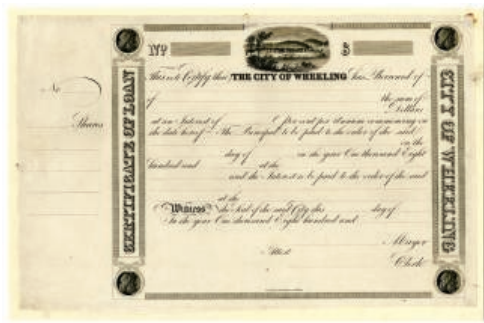 No
Shares
CERTIFICATE OF LOAN
No $
This is to Certify that THE CITY OF WHEELING has Received of
of the sum of
Dollars
at an Interest of per cent per Annum commencing on
the date hereof The Principal to be paid to the order of the said
on the
day of in the year One thousand Eight
hundred and at the
and the Interest to be paid to the order of the said
at the
Witness the Seal of the said City this day of
In the year One thousand Eight hundred and
Mayor
Attest
Clerk
CITY OF WHEELING